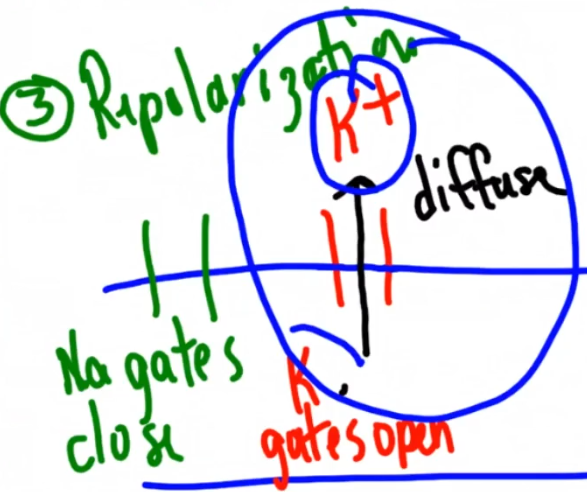 ③ Repolarization
K+
diffuse
Na gates
close
K
gates open